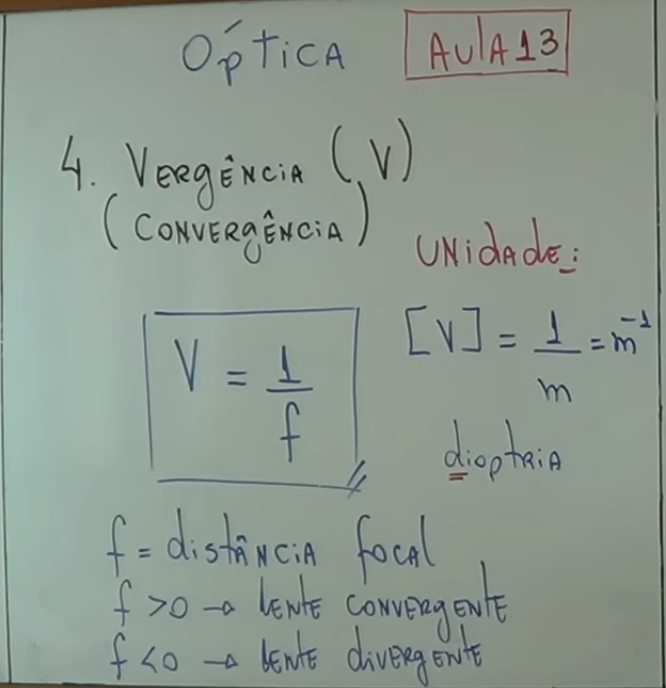 Óptica
Aula 13
4. Vergência (V)
(Convergência)
Unidade:
V = 1/f
[V] = 1/m = m⁻¹
dioptria
f = distância focal
f > 0 → lente convergente
f < 0 → lente divergente